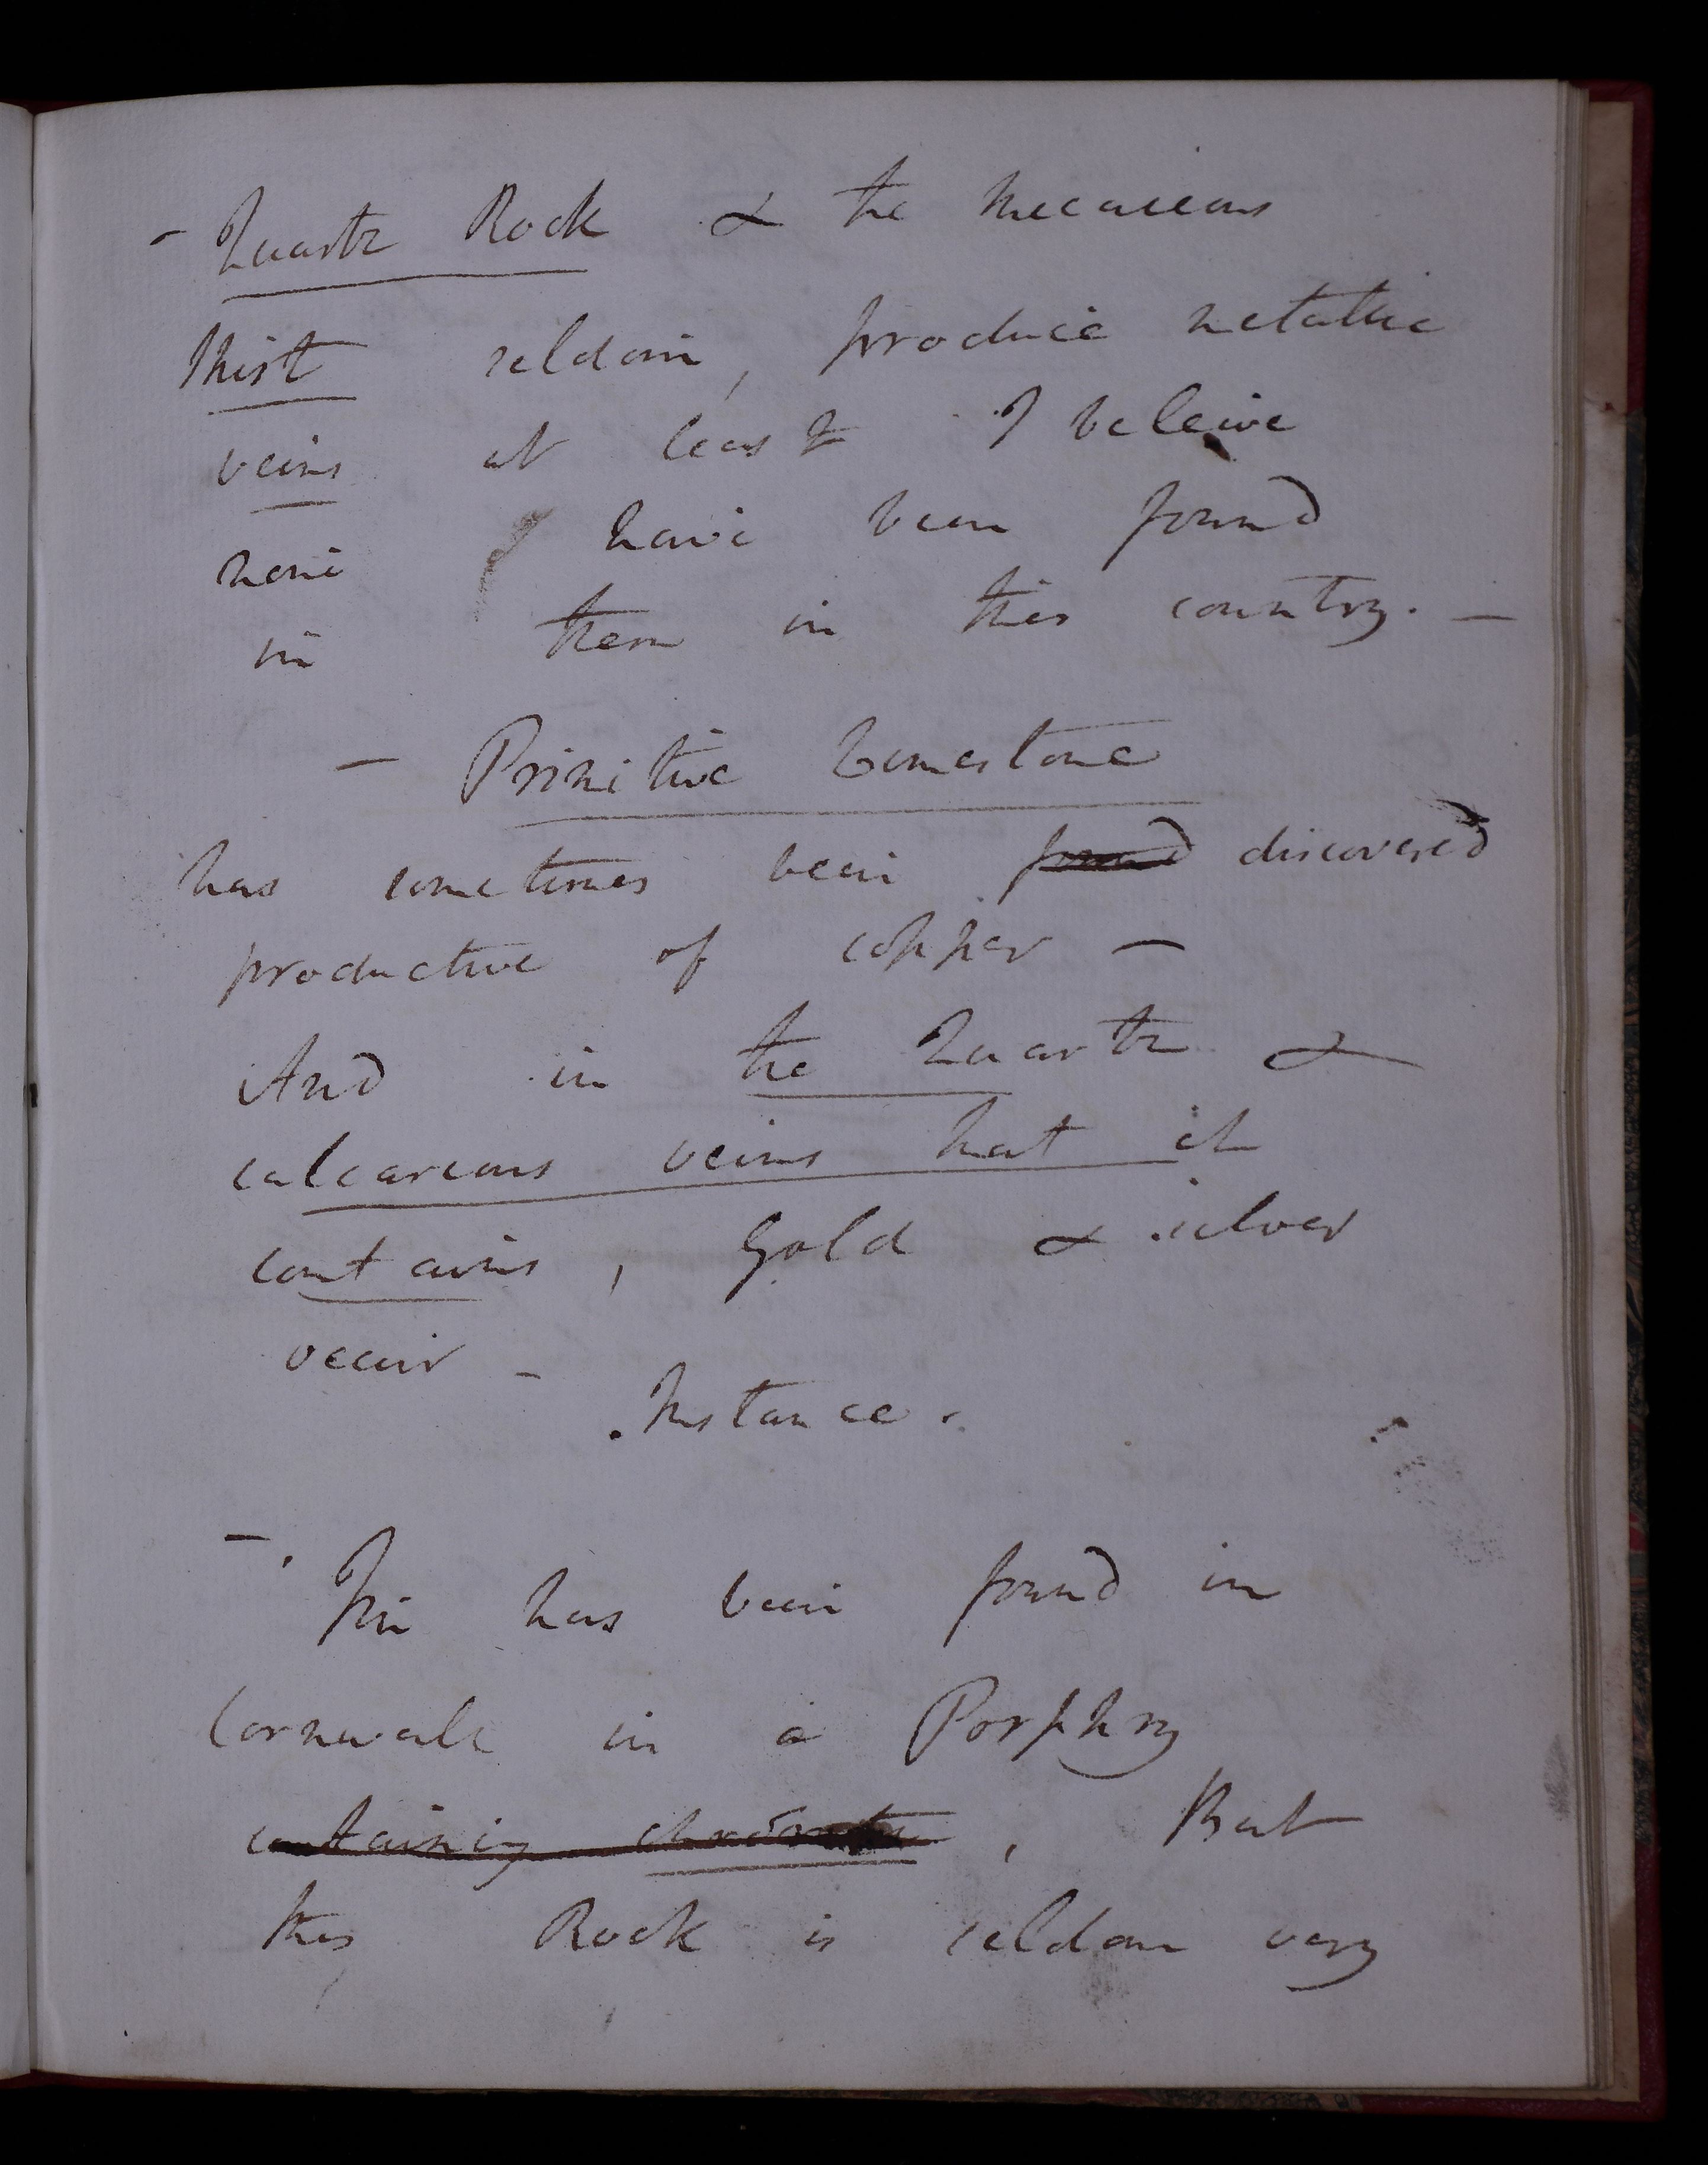 - Quartz Rock & the micaceous
Shist seldom, produce metallic
veins at least I beleive
none have been found
in them in this country. -
- Primitive Limestone
has sometimes been found discovered
productive of copper -
And in the Quartz &
calcareous veins that it
contains, Gold & silver
occur -
. Instance .
- . Tin has been found in
Cornwall in a Porphry
containing , But
this Rock is seldom very